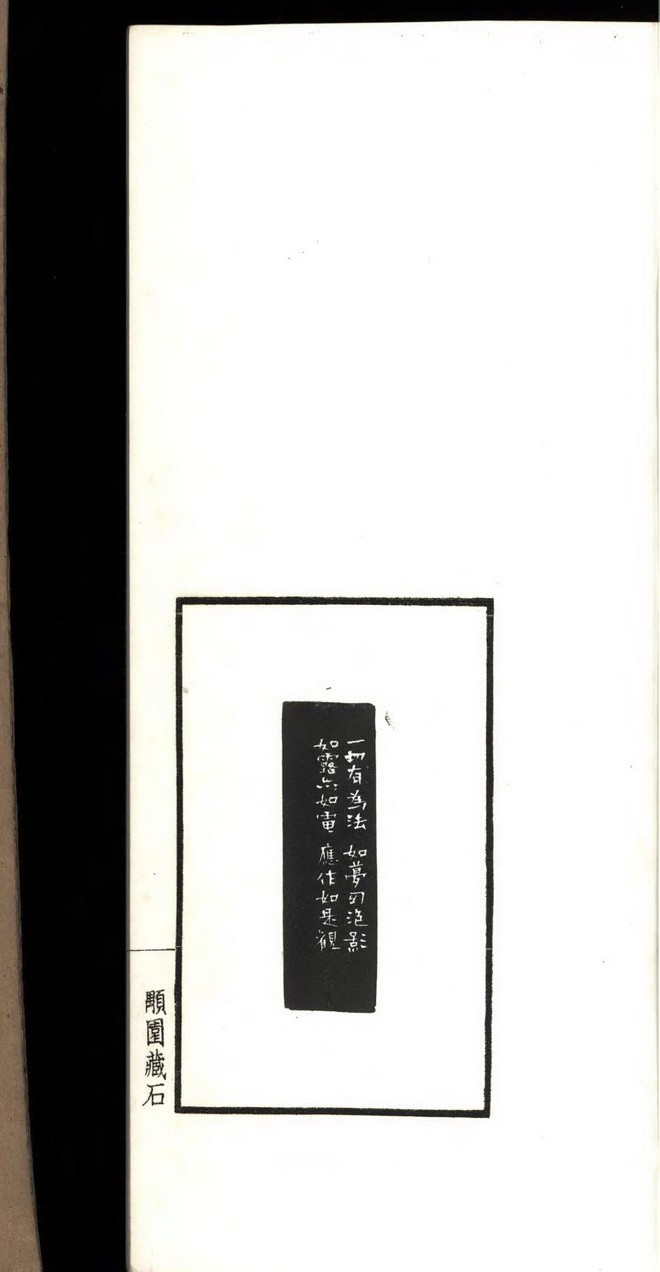 一切有為法 如夢幻泡影
如露亦如電 應作如是觀
顒園藏石